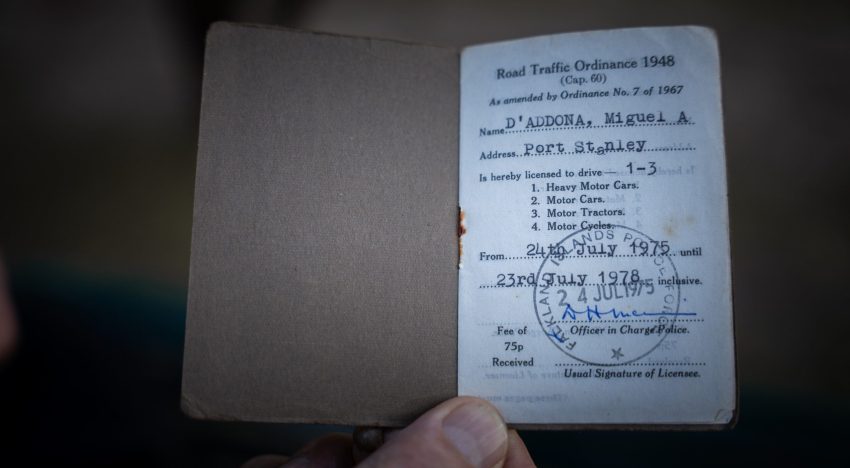 Road Traffic Ordinance 1948
(Cap. 60)
As amended by Ordinance No. 7 of 1967
Name D'ADDONA, Miguel A
Address Port Stanley
Is hereby licensed to drive — 1-3
1. Heavy Motor Cars.
2. Motor Cars.
3. Motor Tractors.
4. Motor Cycles.
From 24th July 1975 until
23rd July 1978 inclusive.
FALKLAND ISLANDS POLICE FORCE
24 JUL 1975
Officer in Charge Police.
Fee of
75p
Received
Usual Signature of Licensee.